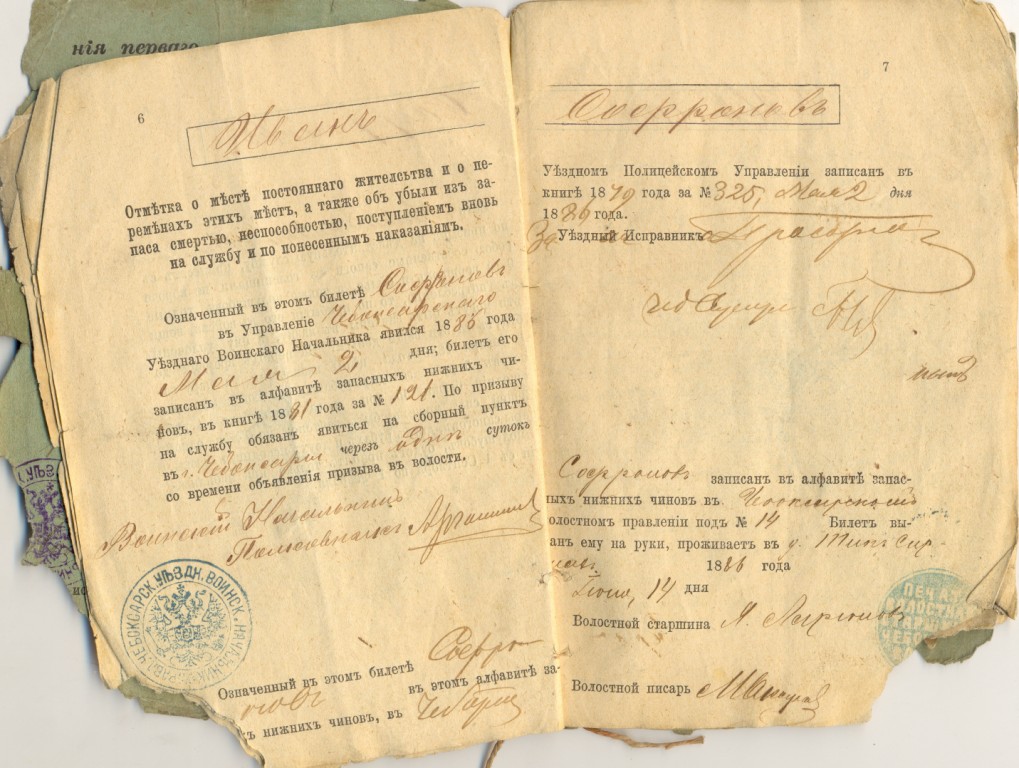 нія перваго
6
Иванъ
Отмѣтка о мѣстѣ постояннаго жителства и о пе-
ремѣнахъ этихъ мѣстъ, а также объ убыли изъ за-
паса смертью, неспособностью, поступленіемъ вновь
на службу и по понесеннымъ наказаніямъ.
Означенный въ этомъ билетѣ Софроновъ
въ Управленіе Чебоксарскаго
Уѣзднаго Воинскаго Начальника явился 1886 года
Мая 2 дня; билетъ его
записанъ въ алфавитѣ запасныхъ нижнихъ чи-
новъ, въ книгѣ 1881 года за № 121. По призыву
на службу обязанъ явиться на сборный пунктъ
въ г. Чебоксары через одни сутокъ
со времени объявленія призыва въ волости.
Воинскій Начальникъ
Полковникъ
ЧЕБОКСАРСК. УѢЗДН. ВОИНСК. НАЧАЛЬНИК
Означенный въ этомъ билетѣ Софро
новъ въ этомъ алфавитѣ за-
хъ нижнихъ чиновъ, въ
7
Софроновъ
Уѣздномъ Полицейскомъ Управленіи записанъ въ
книгѣ 1879 года за № 325, Мая 2 дня
1886 года.
За Уѣздный Исправникъ
Софроновъ записанъ въ алфавитѣ запас-
ныхъ нижнихъ чиновъ въ Чебоксарскомъ
волостномъ правленіи подъ № 14 Билетъ вы-
анъ ему на руки, проживаетъ въ д.
1886 года
Іюня, 14 дня
Волостной старшина Л. Ларіоновъ
ПЕЧАТ
ВОЛОСТНА
Волостной писарь